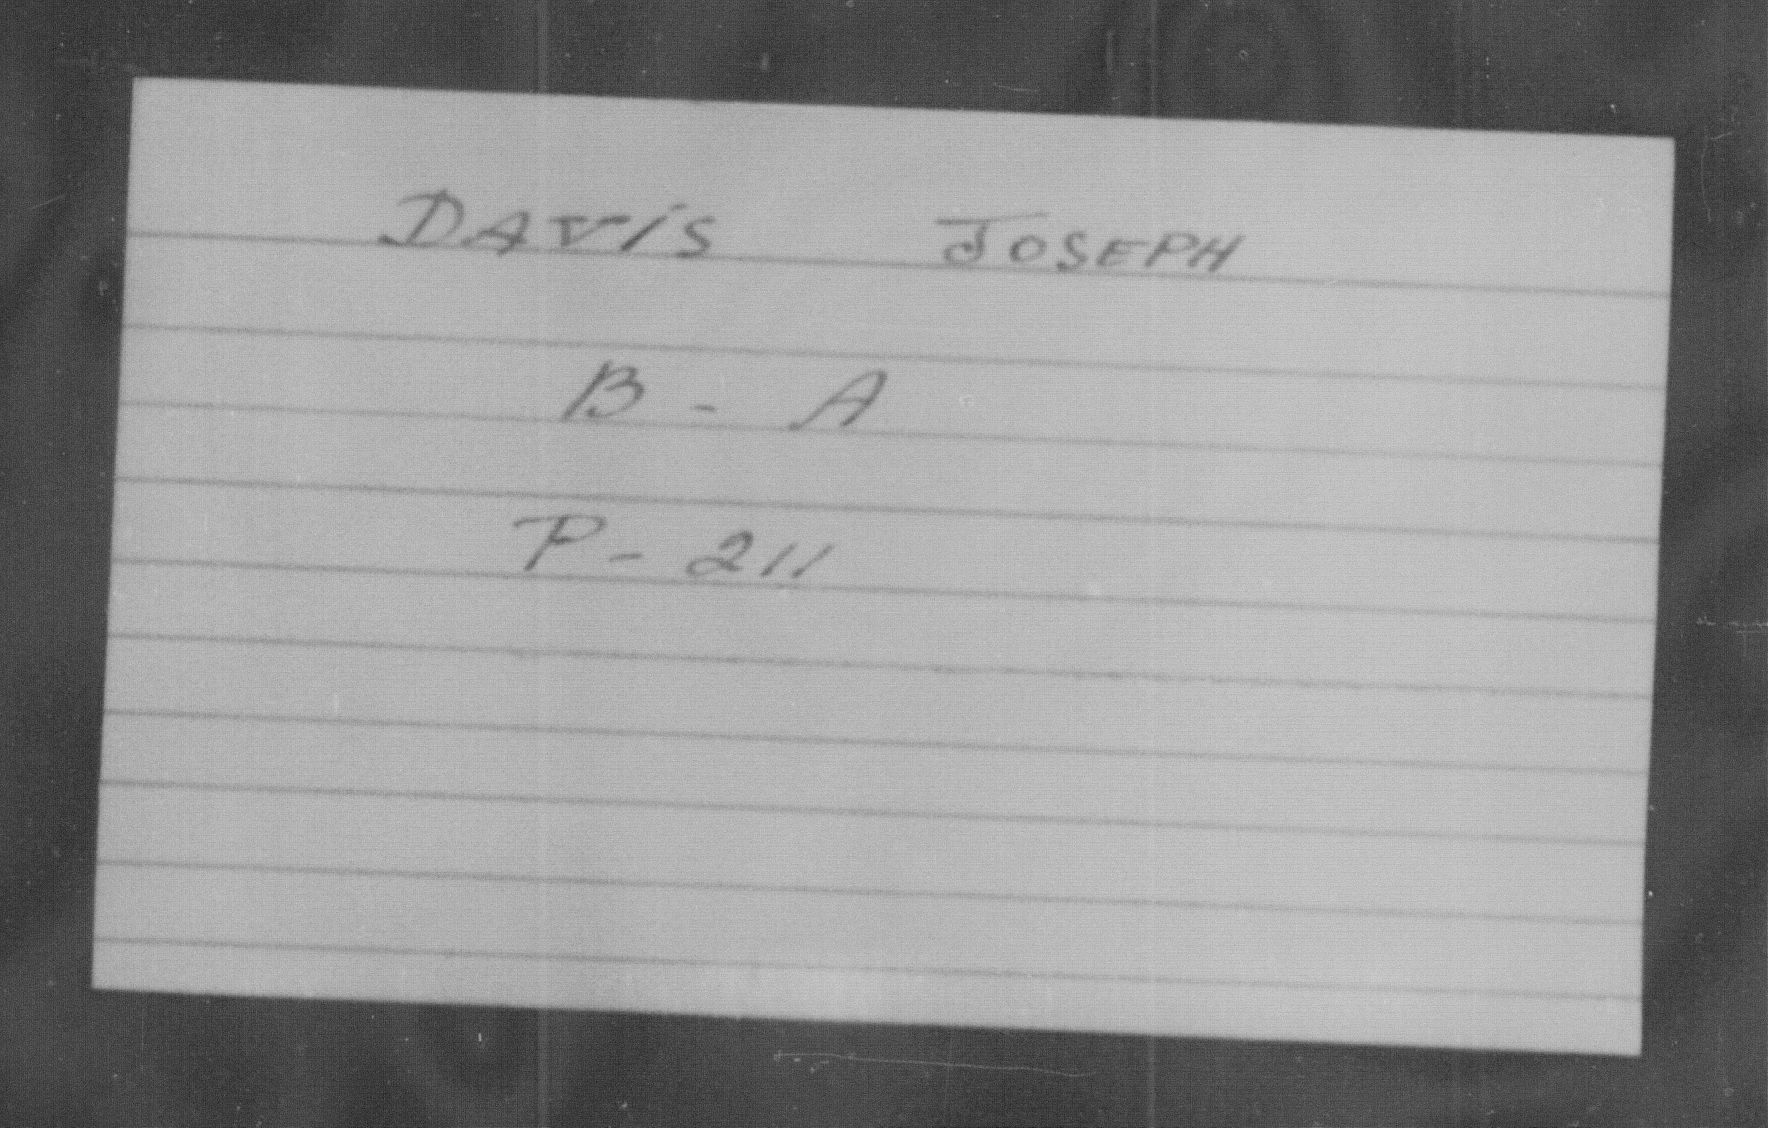 DAVIS JOSEPH
B - A
P - 211